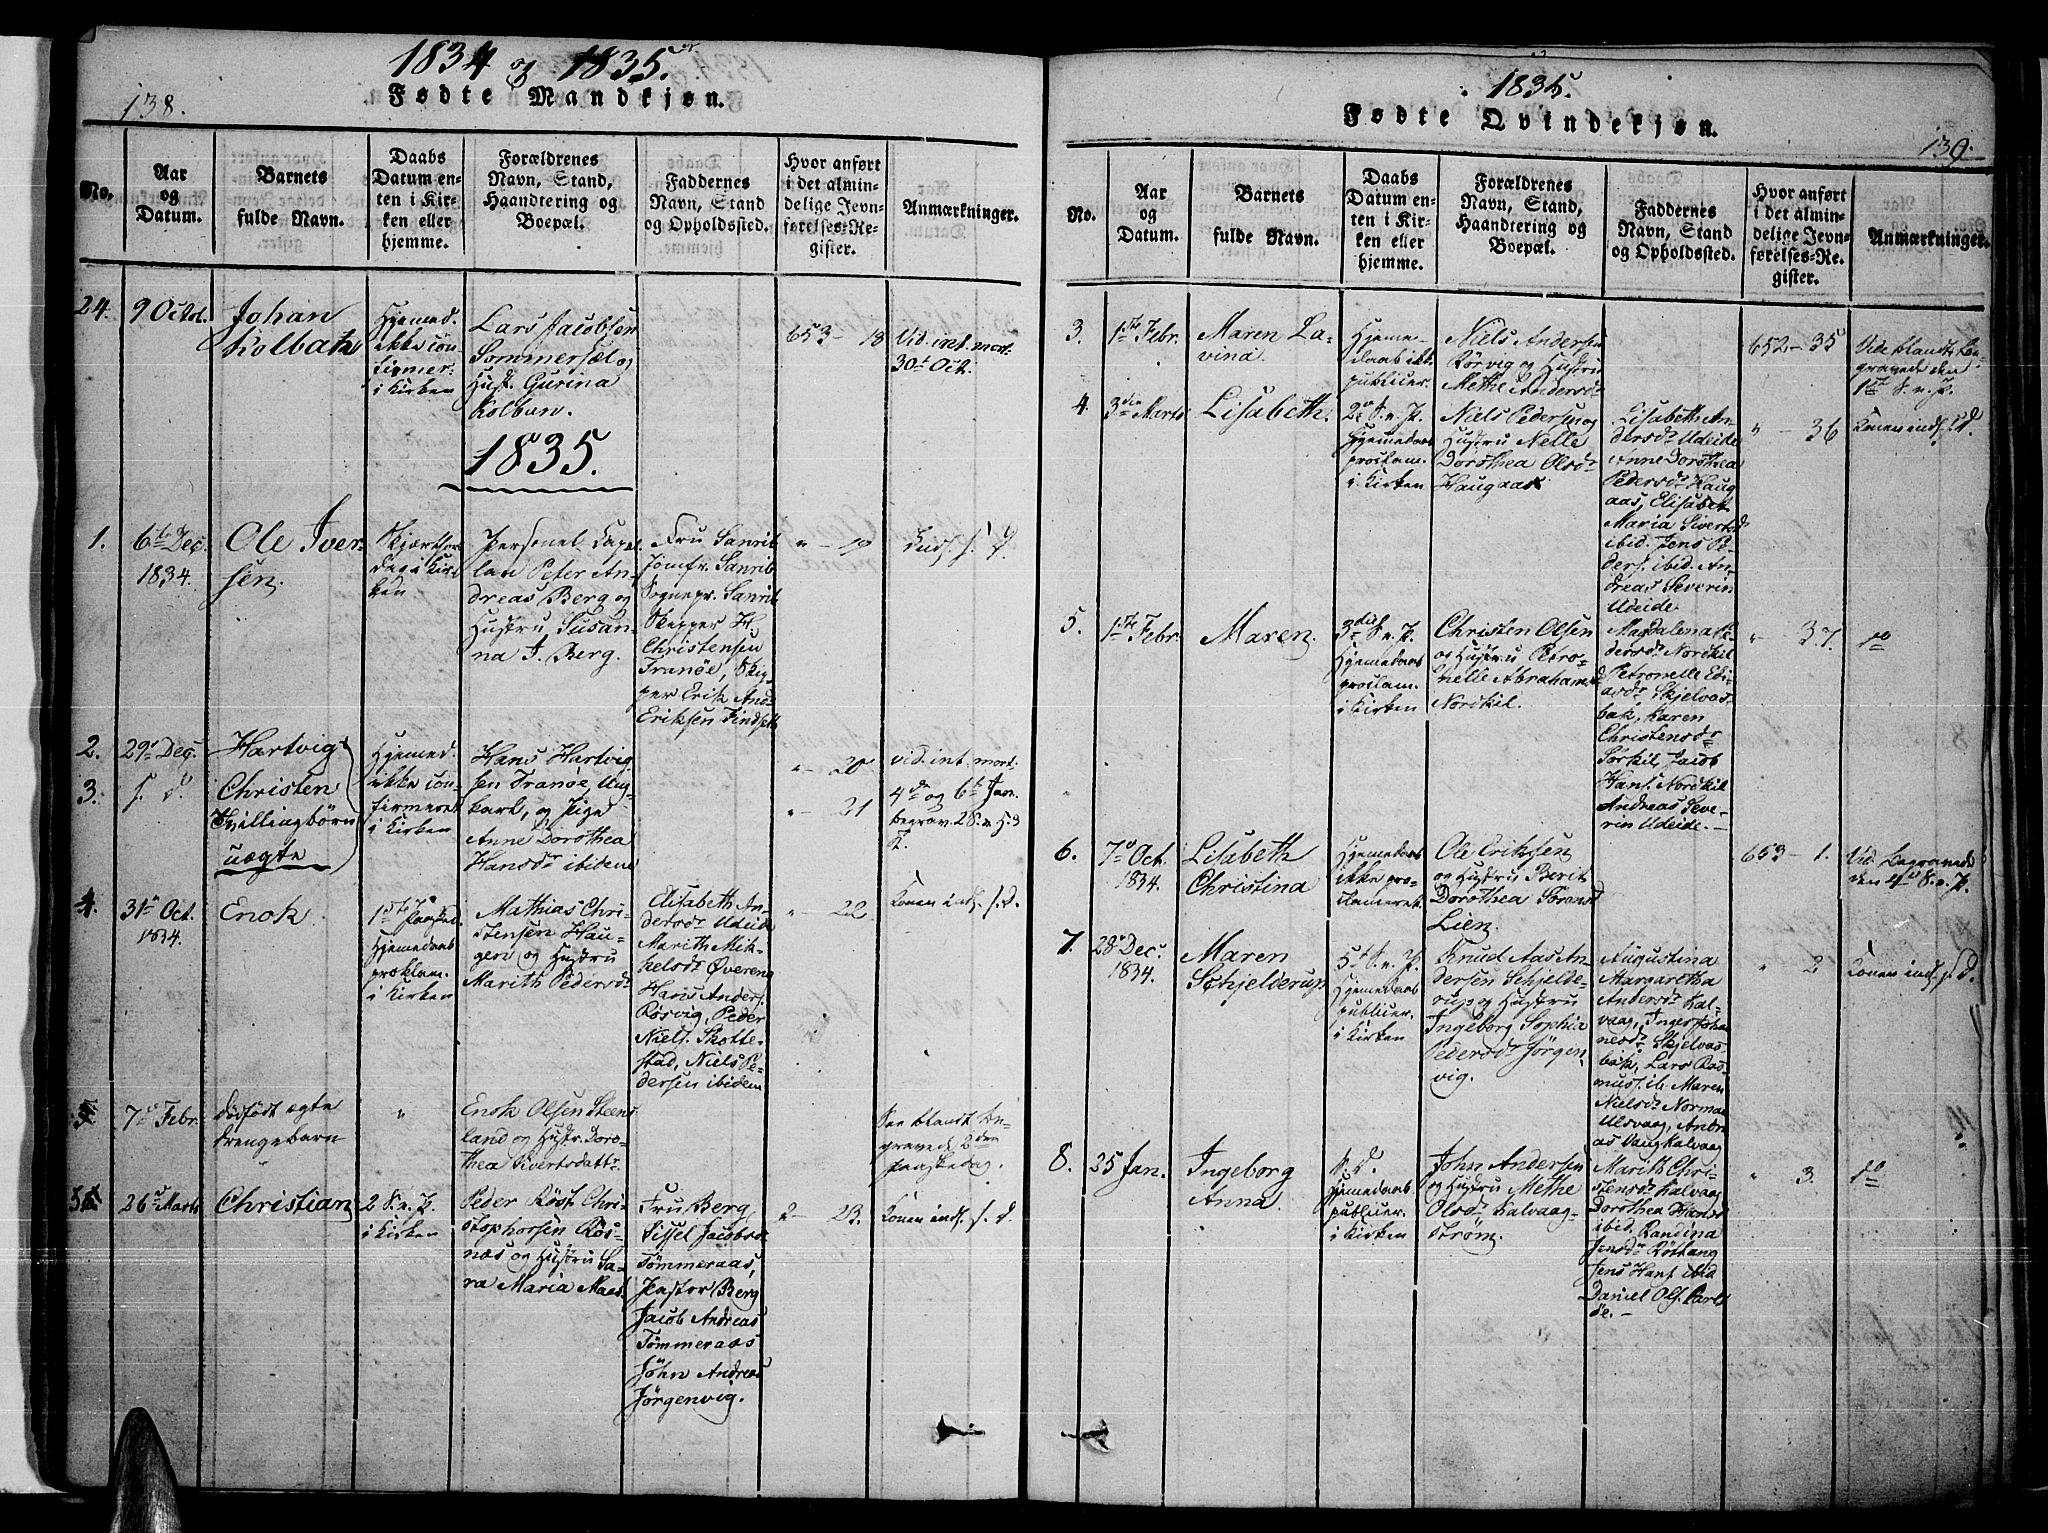 1834 og 1835.
138.
Fødte Mandkjøn.
No.
Aar
og
Datum.
Barnets
fulde Navn.
Daabs
Datum en-
ten i Kir-
ken eller
hjemme.
Forældrenes
Navn, Stand,
Haandtering og
Boepæl.
Faddernes
Navn, Stand
og Opholdssted.
Hvor anført
i det almin-
delige Jevn-
førelses-Re-
gister.
Anmærkninger.
24.
9 Octob.
Johan
Kolban
Hjemed.
ikke con-
firmer.
i Kirken
Lars Jacobsen
Sommersæl og
Hust. Gurina
Kolban.
653 - 18
Vid. iret. mort.
30t Oct.
1835.
1.
6te Dec.
1834.
Ole Iver-
sen.
Skjærtsor
dag i Kir
ken
Personel Capel-
lan Peter An-
dreas Berg og
Hustru, Susan-
na J. Berg.
Fru Sanrib
Jomfr. Sanrib
Sognepr. Sanrib
Skipper H.
Christensen
Tranøe, Skip-
per Erik And.
Eriksen Findsæt
" - 19
2.
29 Dec.
Hartvig
3.
s. d.
Christen
Tvillingbørn
uægte
Hjemed.
ikke con-
firmeret
i Kirken
Hans Hartvig
sen Tranøe, Ung
karl, og Pige
Anne Dorothea
Hansdr ibidem
" - 20
" - 21
vid. int. mort.
4de og 6te Jan.
begrav. 2 S. e. H. 3
K.
4.
31 Oct.
1834.
Enok.
1ste Paaske
Hjemedaab
proklam.
i Kirken
Mathias Chri-
stensen Hau-
gen og Hustru
Marith Pedersdr
Elisabeth An-
dersdr Udeide
Marith Mik-
kelsdr Øvereng
Hans Anders.
Rørvig, Peder
Niels. Skotte-
stad, Niels Pe-
dersen ibidem
" - 22
Konen inds. s. d.
7 Febr.
dødfødt ægte
drengebarn
"
Enok Olsen Steens
land og Hustr. Doro-
thea Sivertsdattr.
See blandt Be-
gravede 2den
Paaskedag.
5.
26 Marts
Christian
2 S. e. P.
i Kirken
Peder Røst Chri-
stophersen Røs-
næs og Hustru Sa-
ra Maria Maes.
Fru Berg,
Sissel Jacobsdr
Tømmeraas,
Pastor Berg
Jacob Andreas
Tømmeraas
John Andreas
Jørgenvig.
" - 23.
Konen inds. s. d.
1835.
Fødte Qvindekjøn.
139.
No.
Aar
og
Datum.
Barnets
fulde Navn.
Daabs
Datum en-
ten i Kir-
ken eller
hjemme.
Forældrenes
Navn, Stand,
Haandtering og
Boepæl.
Faddernes
Navn, Stand
og Opholdssted.
Hvor anført
i det almin-
delige Jevn-
førelses-Re-
gister.
Anmærkninger.
3.
1ste Febr.
Maren La-
vina.
Hjeme-
daab ikke
publicer.
Niels Andersen
Rørvig og Hustru
Methe Andersdr
652 - 35
Vide blandt Be-
gravede den
1ste S. e. P.
4.
3die Marts
Lisabeth.
2 S. e. P.
Hjemedaab
proclam.
i Kirken
Niels Pedersen og
Hustru Nelle
Dorothea Olsdr
Haugaas
Lisabeth An-
dersdr Udeide
Anne Dorothea
Pedersdr Haug
aas, Elisabet
Maria Sivertsd
ibid. Jens Pe-
ders. ibid. An-
dreas Severin
Udeide
" - 36
Konen inds. s. d.
5.
1ste Febr.
Maren.
3die S. e. P.
Hjemedaab
proclam.
i Kirken
Christen Olsen
og Hustru Petro-
nelle Abrahamsd
Nordkil.
Magdalena Pe-
dersdr Nordkil
Petronelle Edi-
asdr Skjelvas-
bak, Karen
Christensdr
Sørkil, Jacob
Hans. Nordkil
Andreas Seve-
rin Udeide.
" - 37.
do
6.
7 Oct.
1834.
Lisabeth
Christina
Hjemedaab
ikke pro-
klameret.
Ole Eriksen
og Hustru Berit
Dorothea Sørensd
Lien.
653 - 1.
Vid. Begravede
den 4de S. e. P.
7.
28 Dec.
1834.
Maren
Schjelderup
5t S. e. P.
Hjemedaab
publicer.
i Kirken
Knud Aas An-
dersen Schjelde-
rup og Hustru
Ingeborg Sophia
Pedersdr Jørgen
vig.
Augustina
Margaretha
Andersdr Kal-
vaag, Inger Johan
nesdr Skjelvas-
bak, Lars Ras-
muss. ib. Maren
Nielsdr Norman
Ulsvaag, Andre
as Vang Kalvaag
" 2
Konen inds. s. d.
8.
25 Jan.
Ingeborg
Anna.
S. d.
Hjemedaab
publicer.
i Kirken
John Andersen
og Hustru Methe
Olsdr Kalvaag-
strøm.
Marith Chri-
stensdr Kalvaag
Dorothea Hansd
ibid. Randina
Jensdr Røttang
Jens Hans. ibid
Daniel Ols. Karls
øe.
" 3.
do